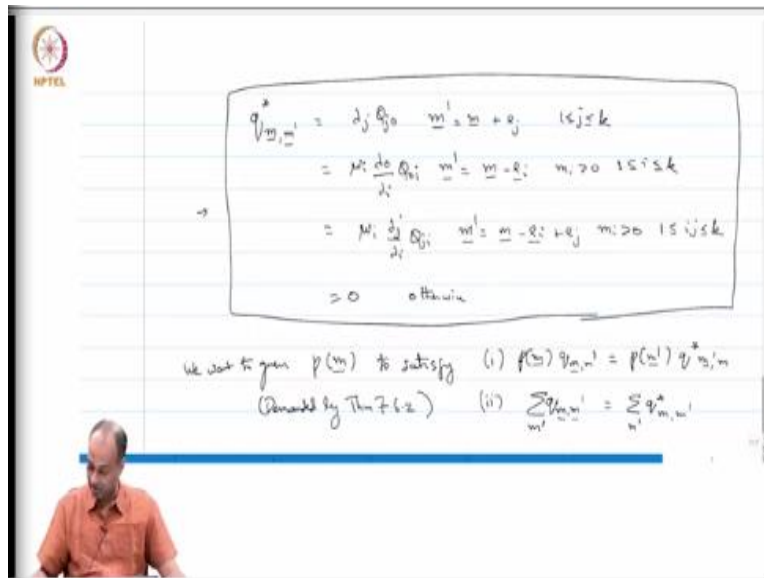 NPTEL
q*_{m,m'} = λ_j Q_{j0} m' = m + e_j 1≤j≤k
= μ_i λ_0/λ_i Q_{0i} m' = m - e_i m_i>0 1≤i≤k
→ = μ_i λ_j/λ_i Q_{ji} m' = m - e_i + e_j m_i>0 1≤i,j≤k
= 0 otherwise
We want to guess p(m) to satisfy (i) p(m) q_{m,m'} = p(m') q*_{m',m}
(Demanded by Thm 7.6.2) (ii) Σ_{m'} q_{m,m'} = Σ_{m'} q*_{m,m'}